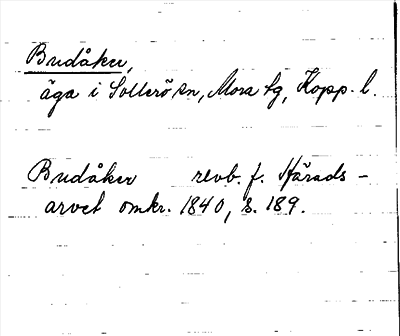 Budåker,
äga i Sollerö sn, Mora tg, Kopp. l.
Budåker revb. f. Härads-
arvet omkr. 1840, s. 189.